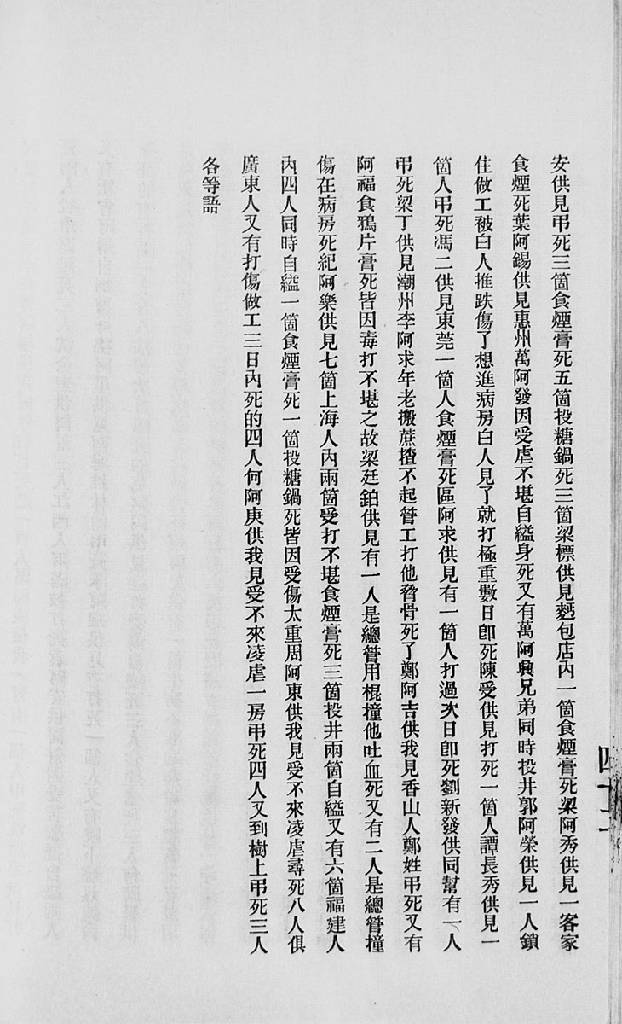 安供見弔死三箇食煙膏死五箇投糖鍋死三箇梁標供見麪包店內一箇食煙膏死梁阿秀供見一客家
食煙死葉阿錫供見惠州萬阿發因受虐不堪自縊身死又有萬阿興兄弟同時投井郭阿榮供見一人鎖
住做工被白人推跌傷了想進病房白人見了就打極重數日卽死陳受供見打死一箇人譚長秀供見一
箇人弔死馮二供見東莞一箇人食煙膏死區阿求供見有一箇人打過次日卽死劉新發供同幫有一人
弔死梁丁供見潮州李阿求年老搬蔗揸不起管工打他脅骨死了鄭阿吉供我見香山人鄭姓弔死又有
阿福食鴉片膏死皆因毒打不堪之故梁廷鉑供見有一人是總管用棍撞他吐血死又有二人是總管撞
傷在病房死紀阿樂供見七箇上海人內兩箇受打不堪食煙膏死三箇投井兩箇自縊又有六箇福建人
內四人同時自縊一箇食煙膏死一箇投糖鍋死皆因受傷太重周阿東供我見受不來凌虐尋死八人俱
廣東人又有打傷做工三日內死的四人何阿庚供我見受不來凌虐一房弔死四人又到樹上弔死三人
各等語